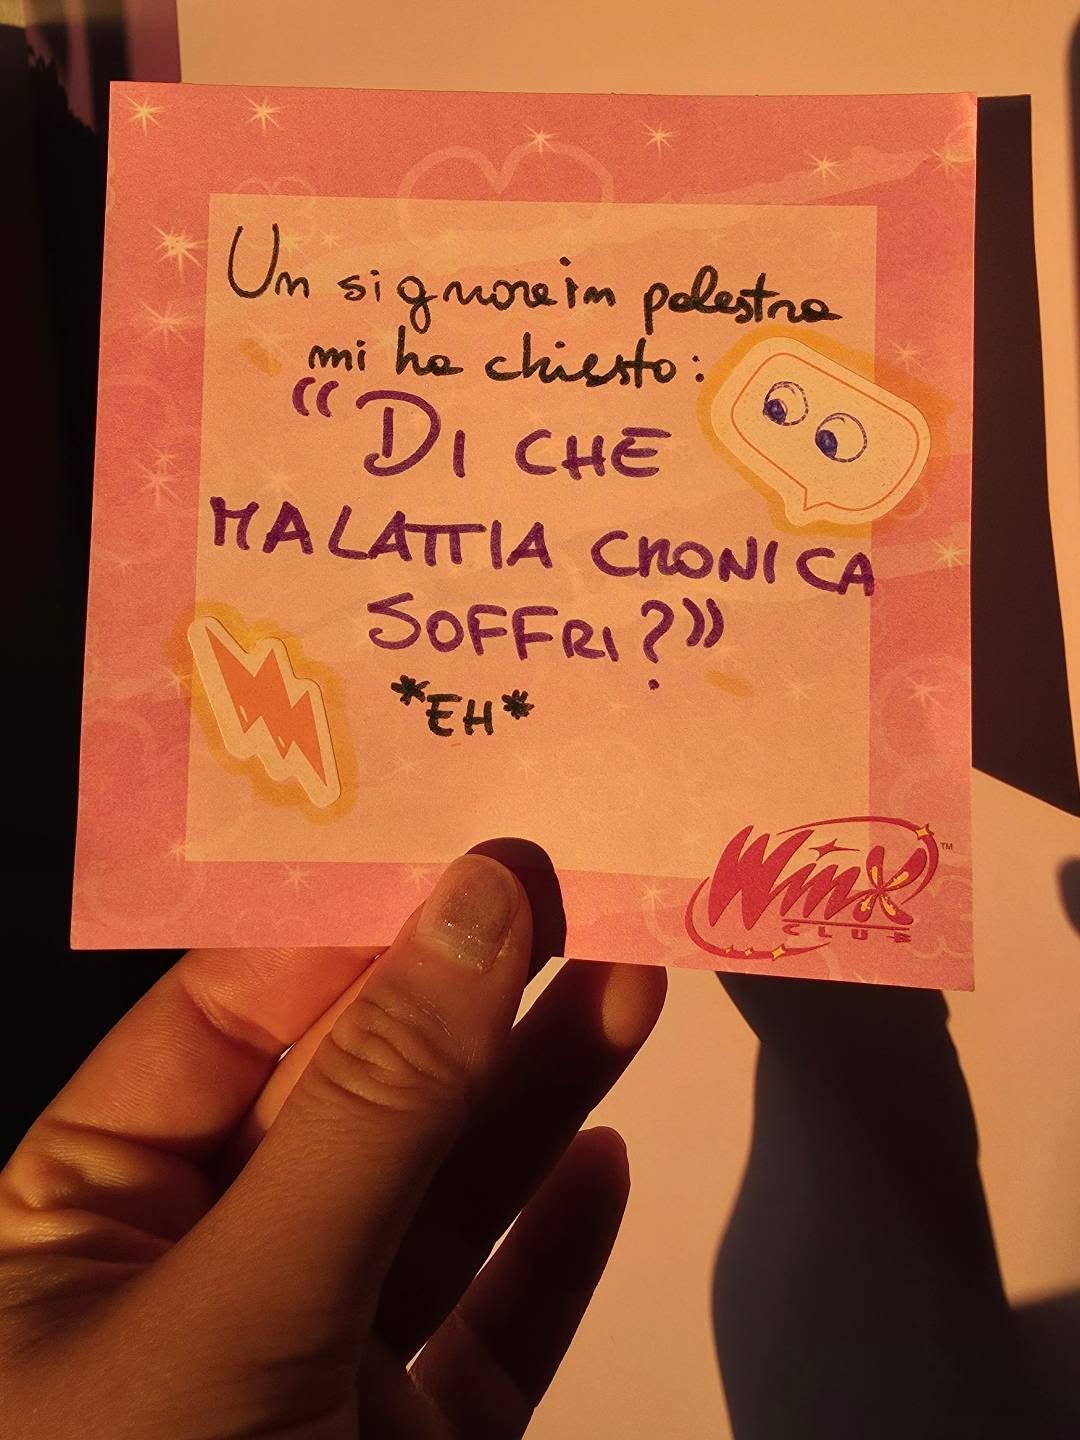 Un signore in palestra
mi ha chiesto:
"DI CHE
MALATTIA CRONICA
SOFFRI?"
*EH*
Winx
CLUB
TM